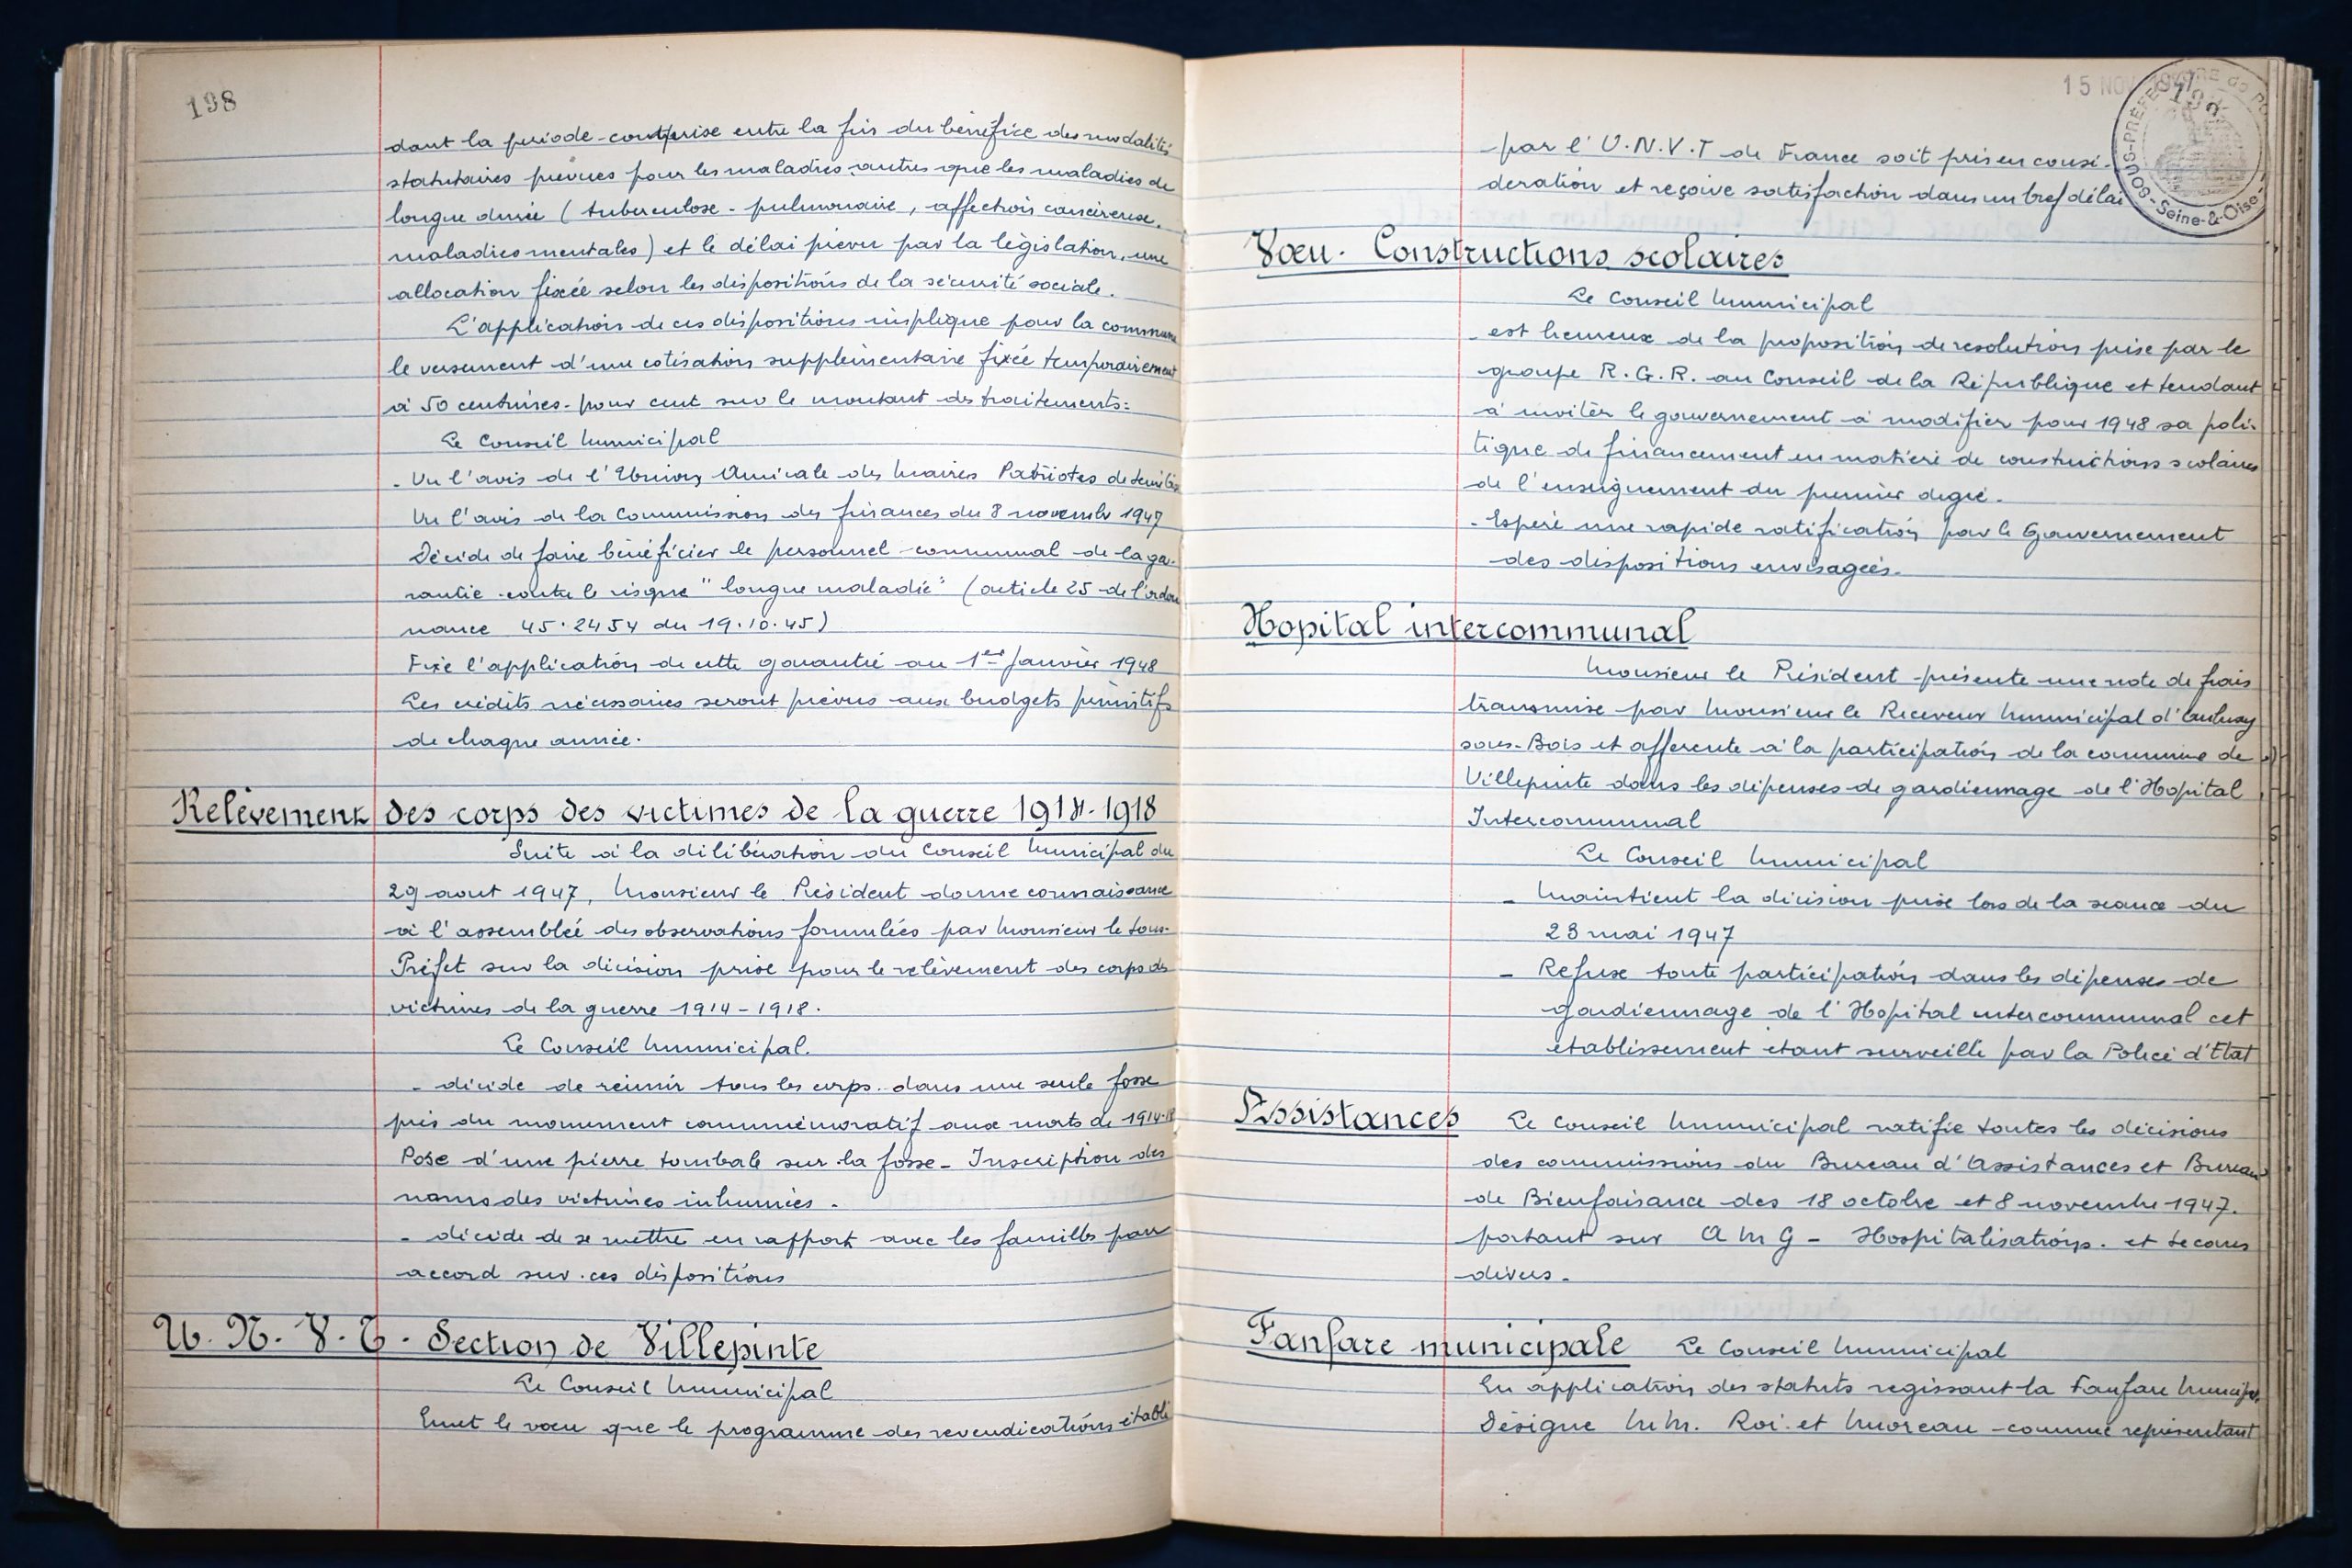 198
dant la période comprise entre la fin du bénéfice des modalités
statutaires prévues pour les maladies autres que les maladies de
longue durée (tuberculose - pulmonaire, affection cancéreuse,
maladies mentales) et le délai prévu par la législation, une
allocation fixée selon les dispositions de la sécurité sociale.
L'application de ces dispositions implique pour la commune
le versement d'une cotisation supplémentaire fixée temporairement
à 50 centimes pour cent sur le montant des traitements:
Le Conseil Municipal
- Vu l'avis de l'Union Amicale des Maires Patriotes de
Vu l'avis de la Commission des finances du 8 novembre 1947
Décide de faire bénéficier le personnel communal de la ga-
rantie contre le risque "longue maladie" (article 25 de l'ordon
nance 45.2454 du 19.10.45)
Fixe l'application de cette garantie au 1er Janvier 1948
Les crédits nécessaires seront prévus aux budgets primitifs
de chaque année.
Relèvement des corps des victimes de la guerre 1914-1918
Suite à la délibération du Conseil Municipal du
29 aout 1947, Monsieur le Président donne connaissance
à l'assemblée des observations formulées par Monsieur le Sous-
Préfet sur la décision prise pour le relèvement des corps des
victimes de la guerre 1914-1918.
Le Conseil Municipal.
- décide de réunir tous les corps dans une seule fosse
près du monument commémoratif aux morts de 1914-18
Pose d'une pierre tombale sur la fosse - Inscription des
noms des victimes inhumées.
- décide de se mettre en rapport avec les familles pour
accord sur ces dispositions
U.N.V.T. Section de Villepinte
Le Conseil Municipal
Emet le vœu que le programme des revendications établi
15 NOV 1947
SOUS-PRÉFECTURE de
Seine-&-Oise
par l'U.N.V.T de France soit pris en consi-
dération et reçoive satisfaction dans un bref délai
Vœu. Constructions scolaires
Le Conseil Municipal
- est heureux de la proposition de résolution prise par le
groupe R.G.R. au Conseil de la République et tendant
à inviter le gouvernement à modifier pour 1948 sa poli-
tique de financement en matière de constructions scolaires
de l'enseignement du premier degré.
- Espère une rapide ratification par le Gouvernement
des dispositions envisagées.
Hopital intercommunal
Monsieur le Président présente une note de frais
transmise par Monsieur le Receveur Municipal d'Aulnay
sous-Bois et afférente à la participation de la commune de
Villepinte dans les dépenses de gardiennage de l'Hopital
Intercommunal
Le Conseil Municipal
- Maintient la décision prise lors de la séance du
23 mai 1947
- Refuse toute participation dans les dépenses de
gardiennage de l'Hopital intercommunal cet
établissement étant surveillé par la Police d'Etat
Assistances Le Conseil Municipal ratifie toutes les décisions
des commissions du Bureau d'Assistances et Bureau
de Bienfaisance des 18 octobre et 8 novembre 1947.
portant sur A M G - Hospitalisations. et secours
divers.
Fanfare municipale Le Conseil Municipal
En application des statuts régissant la Fanfare Municip.
Désigne M.M. Roi et Moreau comme représentant